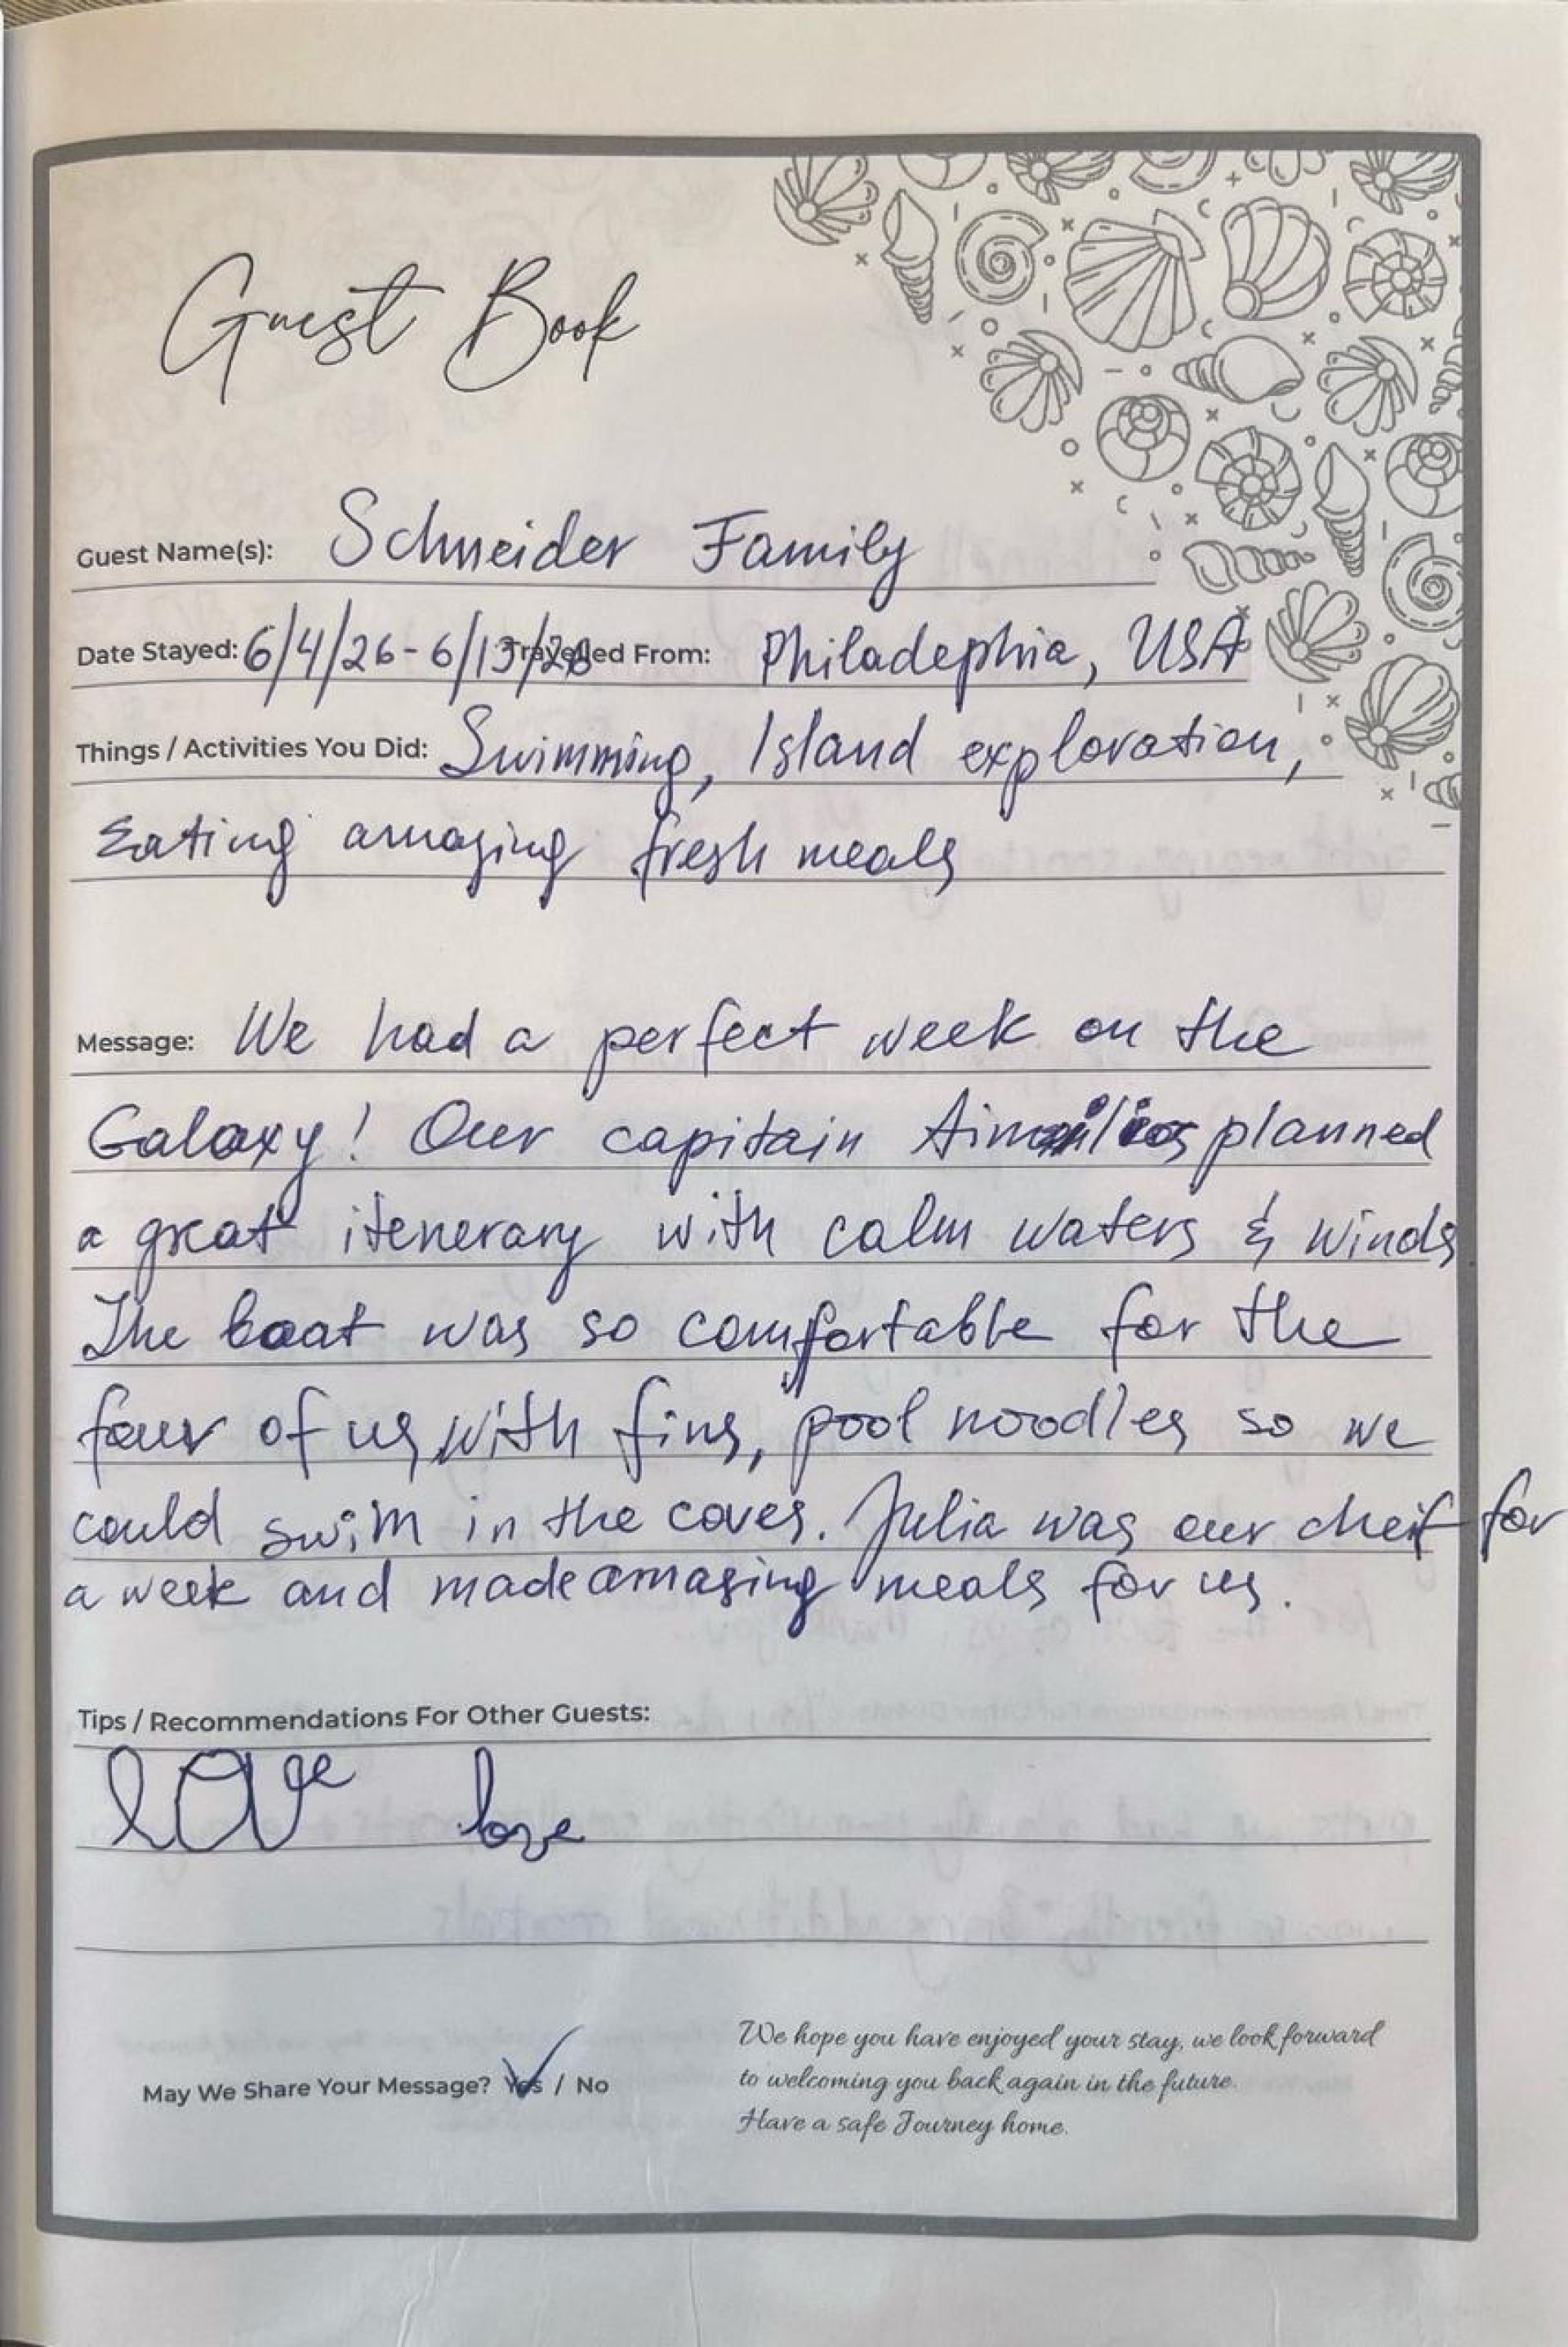 Guest Book
Guest Name(s): Schneider Family
Date Stayed: 6/4/26 - 6/13/26 Travelled From: Philadephia, USA
Things / Activities You Did: Swimming, Island exploration,
Eating amazing fresh meals
Message: We had a perfect week on the
Galaxy! Our capitain Aimilios planned
a great itenerary with calm waters & winds
The boat was so comfortable for the
four of us, with fins, pool noodles so we
could swim in the coves. Julia was our cheif for
a week and made amasing meals for us.
Tips / Recommendations For Other Guests:
love love
May We Share Your Message? Yes / No
We hope you have enjoyed your stay, we look forward
to welcoming you back again in the future.
Have a safe Journey home.